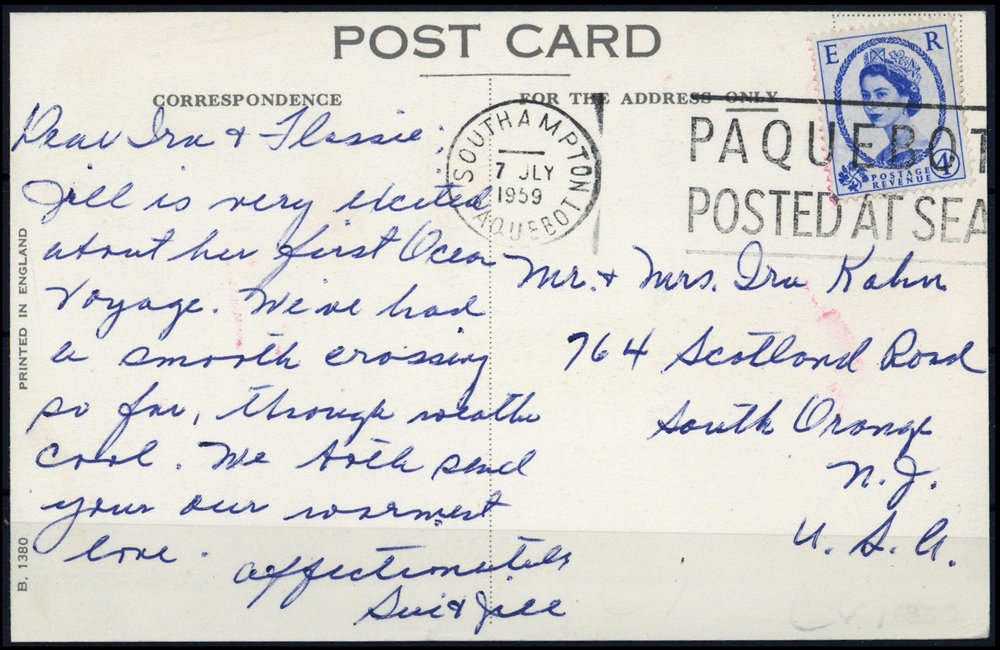 POST CARD
CORRESPONDENCE
FOR THE ADDRESS ONLY
E R
POSTAGE
REVENUE
4D
SOUTHAMPTON
7 JLY
1959
PAQUEBOT
PAQUEBOT
POSTED AT SEA
Dear Ira & Flossie;
Jill is very excited
about her first Ocean
Voyage. We've had
a smooth crossing
so far, though weathe
cool. We both send
your our warmest
love.
affectionately
Sui & Jill
Mr. & Mrs. Ira Kahn
764 Scotland Road
South Orange
N. J.
U. S. A.
PRINTED IN ENGLAND
B. 1380